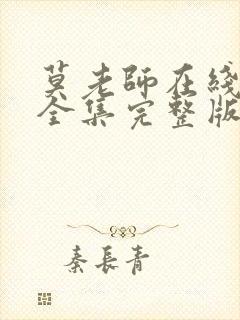 莫老師在綫
全集完整版
秦長青